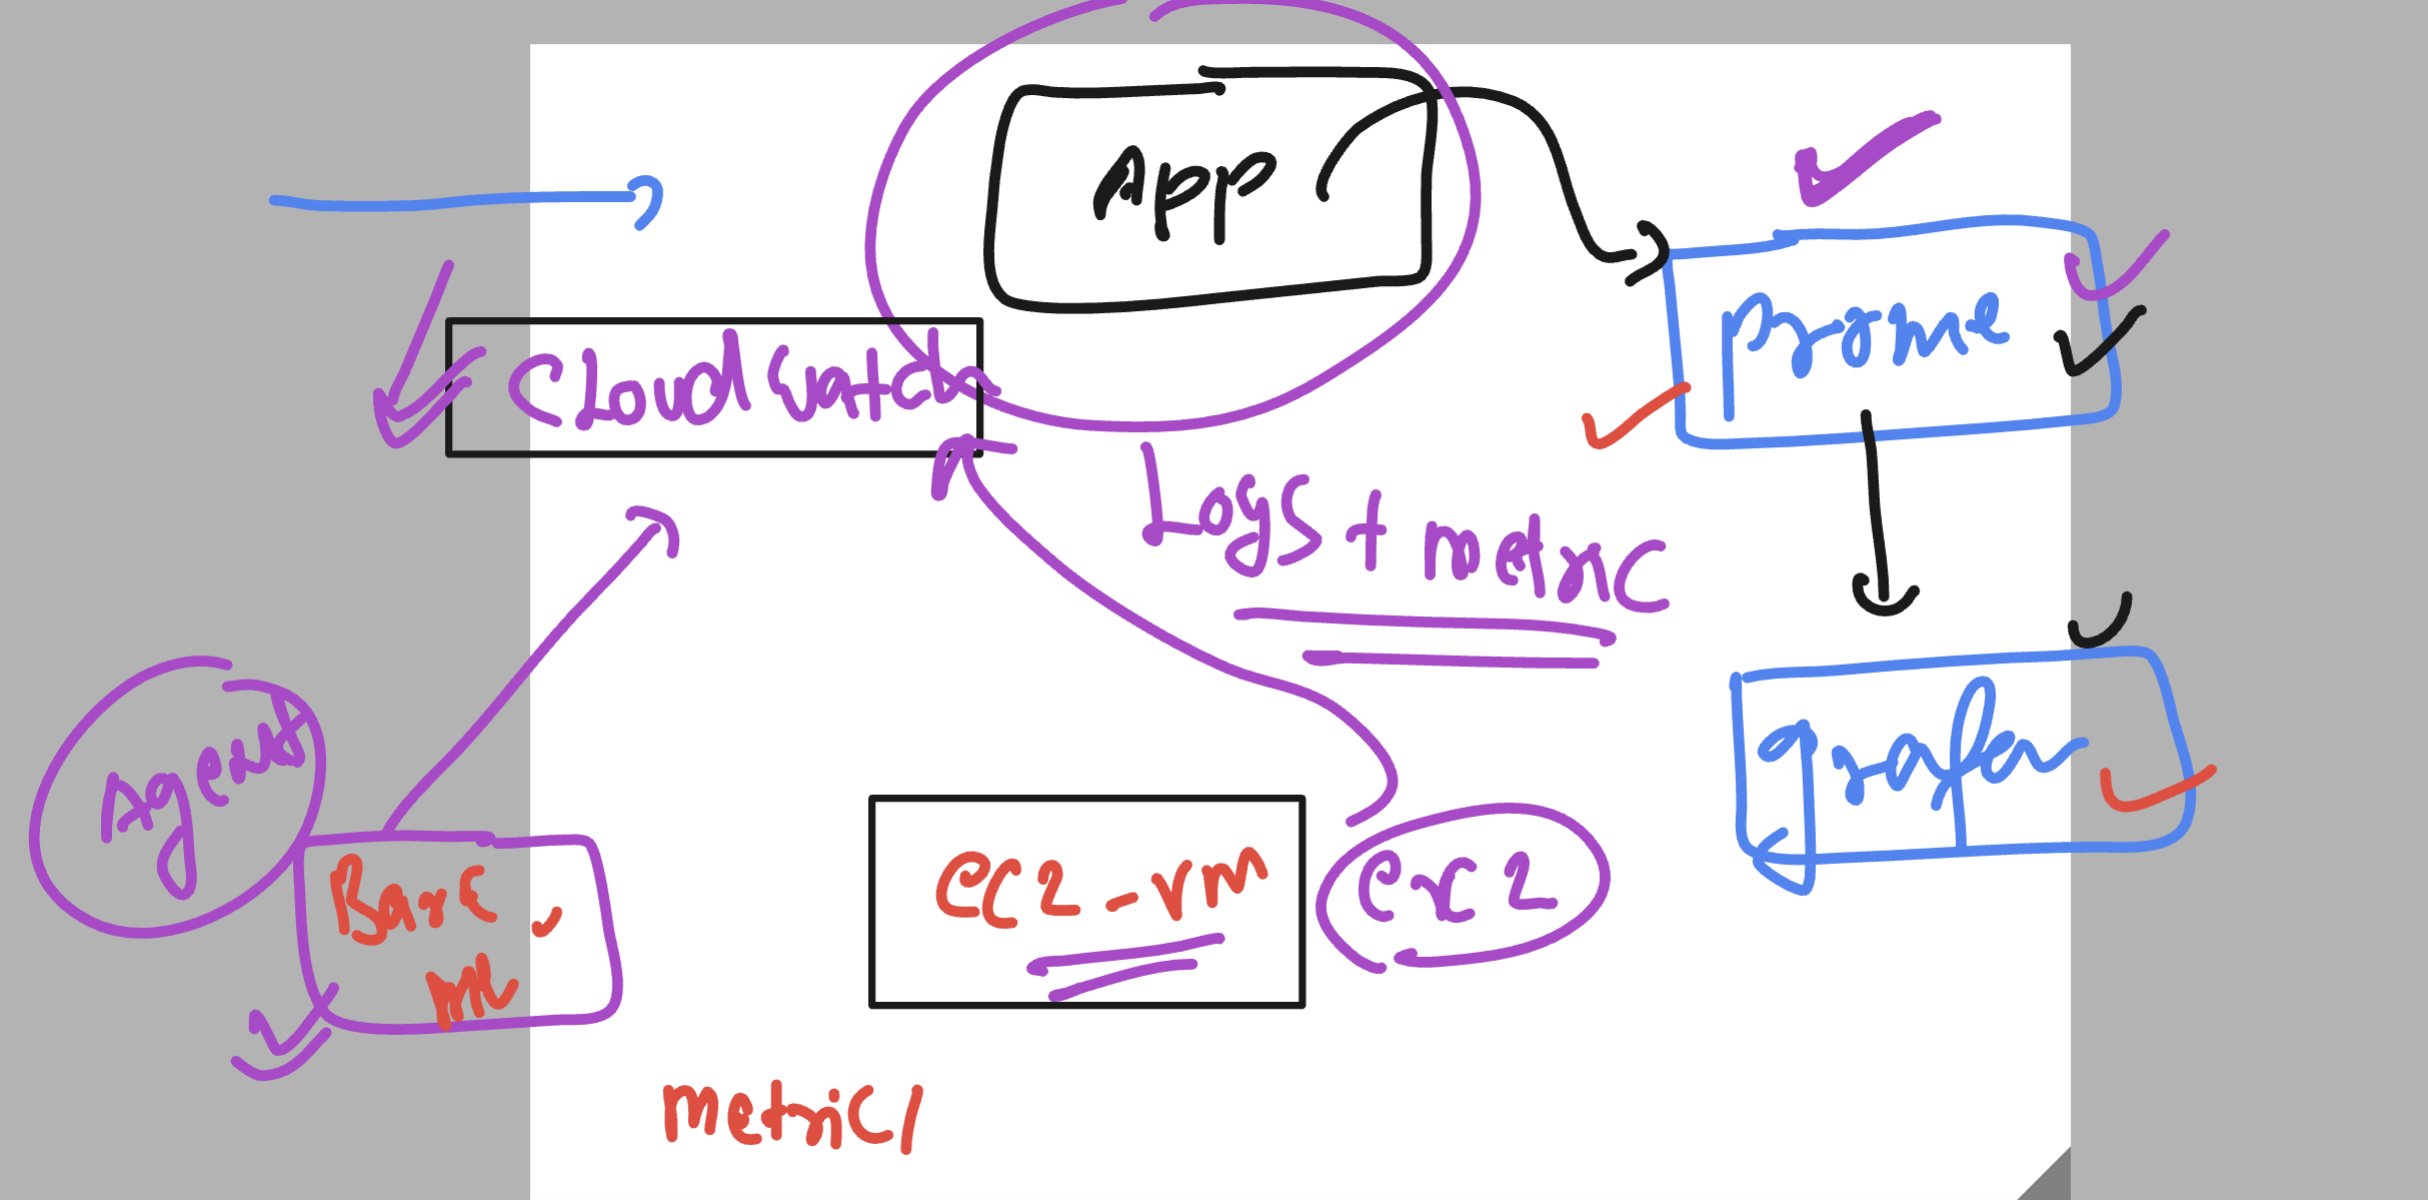 App
prome
Cloud watch
Logs + metric
Agent
grafan
Bare
m
EC2-vm
EC2
metric/